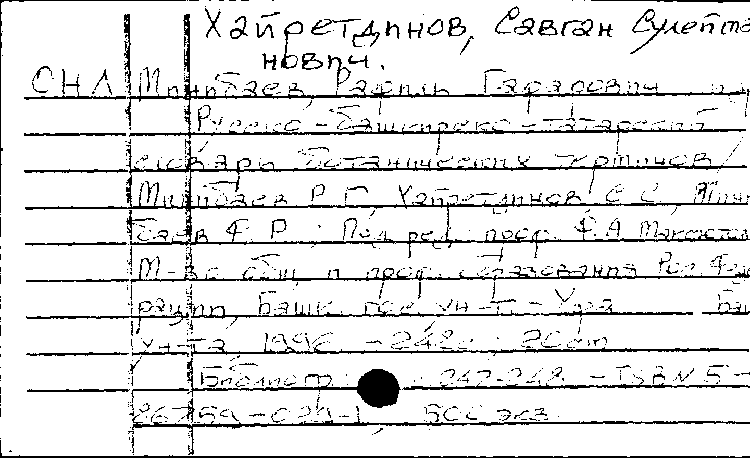 Хайретдинов, Савган Сулейма
нович.
СНЛ Минибаев, Рафиль Гафарович и др
Русско-башкирско-татарский
словарь ботанических терминов /
Минибаев Р. Г., Хайретдинов С. С., Мини
баев Ф. Р.; Под ред. проф. Ф. А. Максютов
М-во общ. и проф. образования Рос. Феде
рации, Башк. гос. ун-т. - Уфа Ба
ун-та, 1996 - 248с.; 20см
Библиогр.: 247-248. - ISBN 5-
86759-029-1, 500 экз.